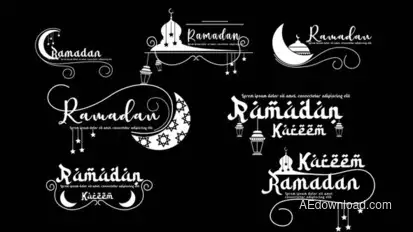 Ramadan
Ramadan
Lorem ipsum dolor sit amet, consectetur adipiscing elit
Ramadan
Ramadan
Lorem ipsum dolor sit amet, consectetur adipiscing elit
Lorem ipsum dolor sit amet, consectetur adipiscing elit
Ramadan
Kareem
Ramadan
Kareem
Kareem
Ramadan
Lorem ipsum dolor sit amet, consectetur adipiscing elit
AEdownload.com